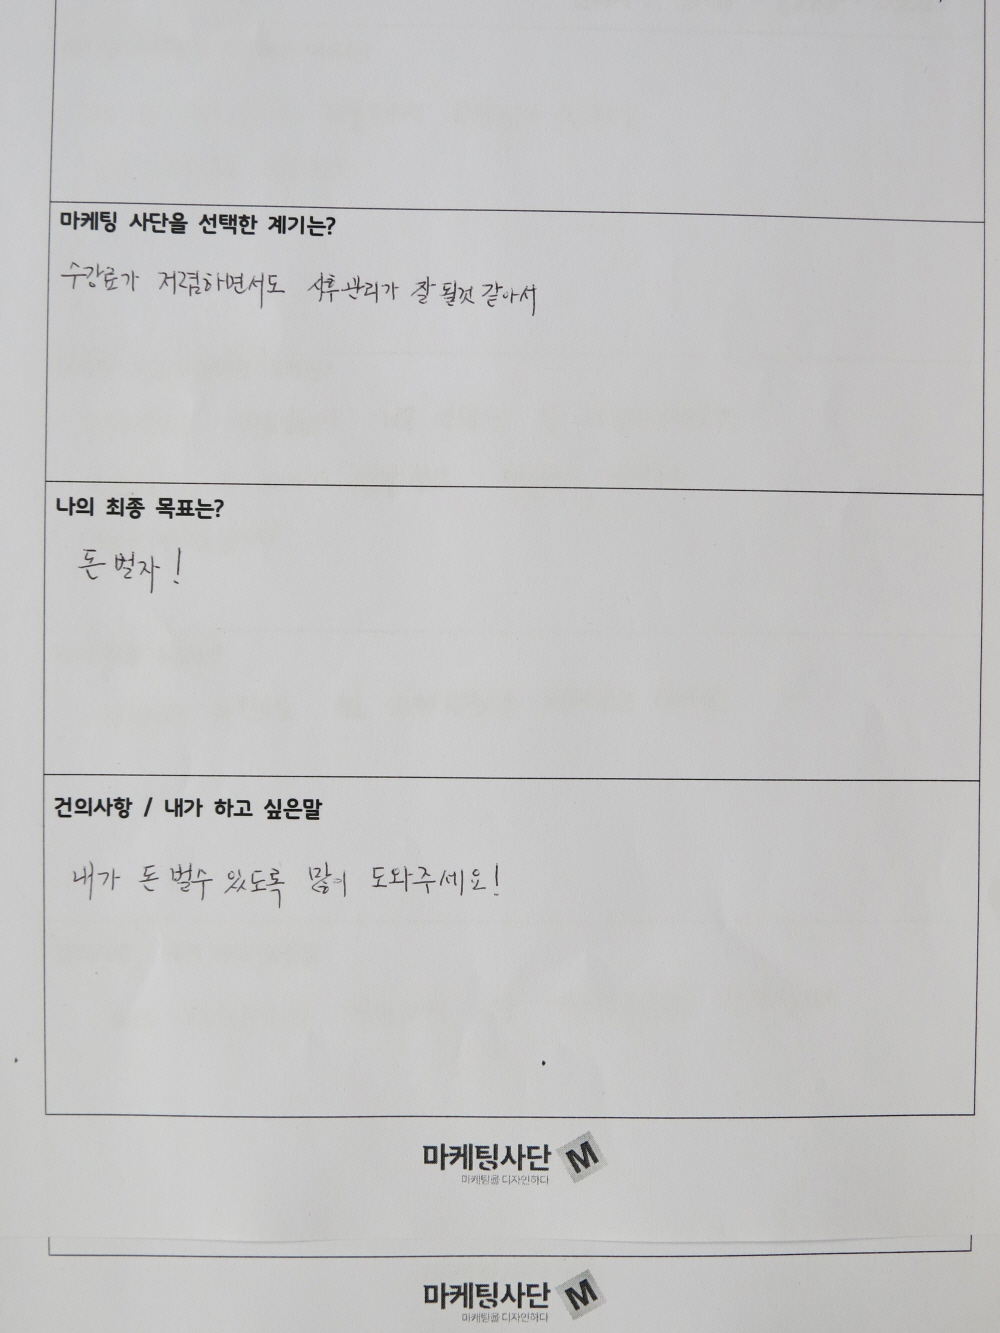 마케팅 사단을 선택한 계기는?
수강료가 저렴하면서도 사후관리가 잘 될것 같아서
나의 최종 목표는?
돈 벌자!
건의사항 / 내가 하고 싶은말
내가 돈 벌수 있도록 많이 도와주세요!
마케팅사단 M
마케팅을 디자인하다
마케팅사단 M
마케팅을 디자인하다